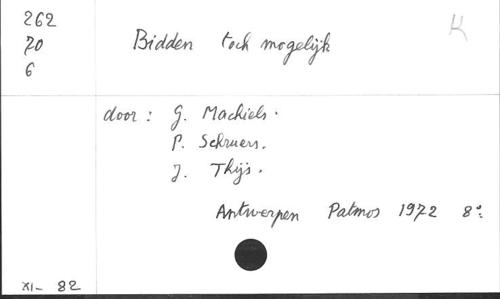 262
70
6
K
Bidden toch mogelijk
door : G. Machiels.
P. Schruers.
J. Thijs.
Antwerpen Patmos 1972 8°:
XI- 82